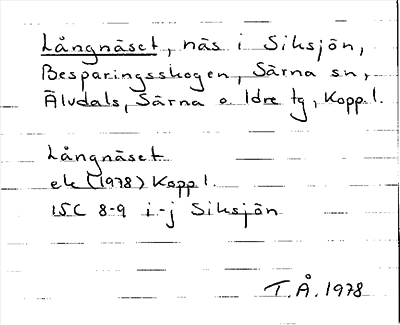 Långnäset, näs i Siksjön,
Besparingsskogen, Särna sn,
Älvdals, Särna o Idre tg, Kopp.l.
Långnäset
ek (1978) Kopp l.
15C 8-9 i-j Siksjön
T.Å. 1978